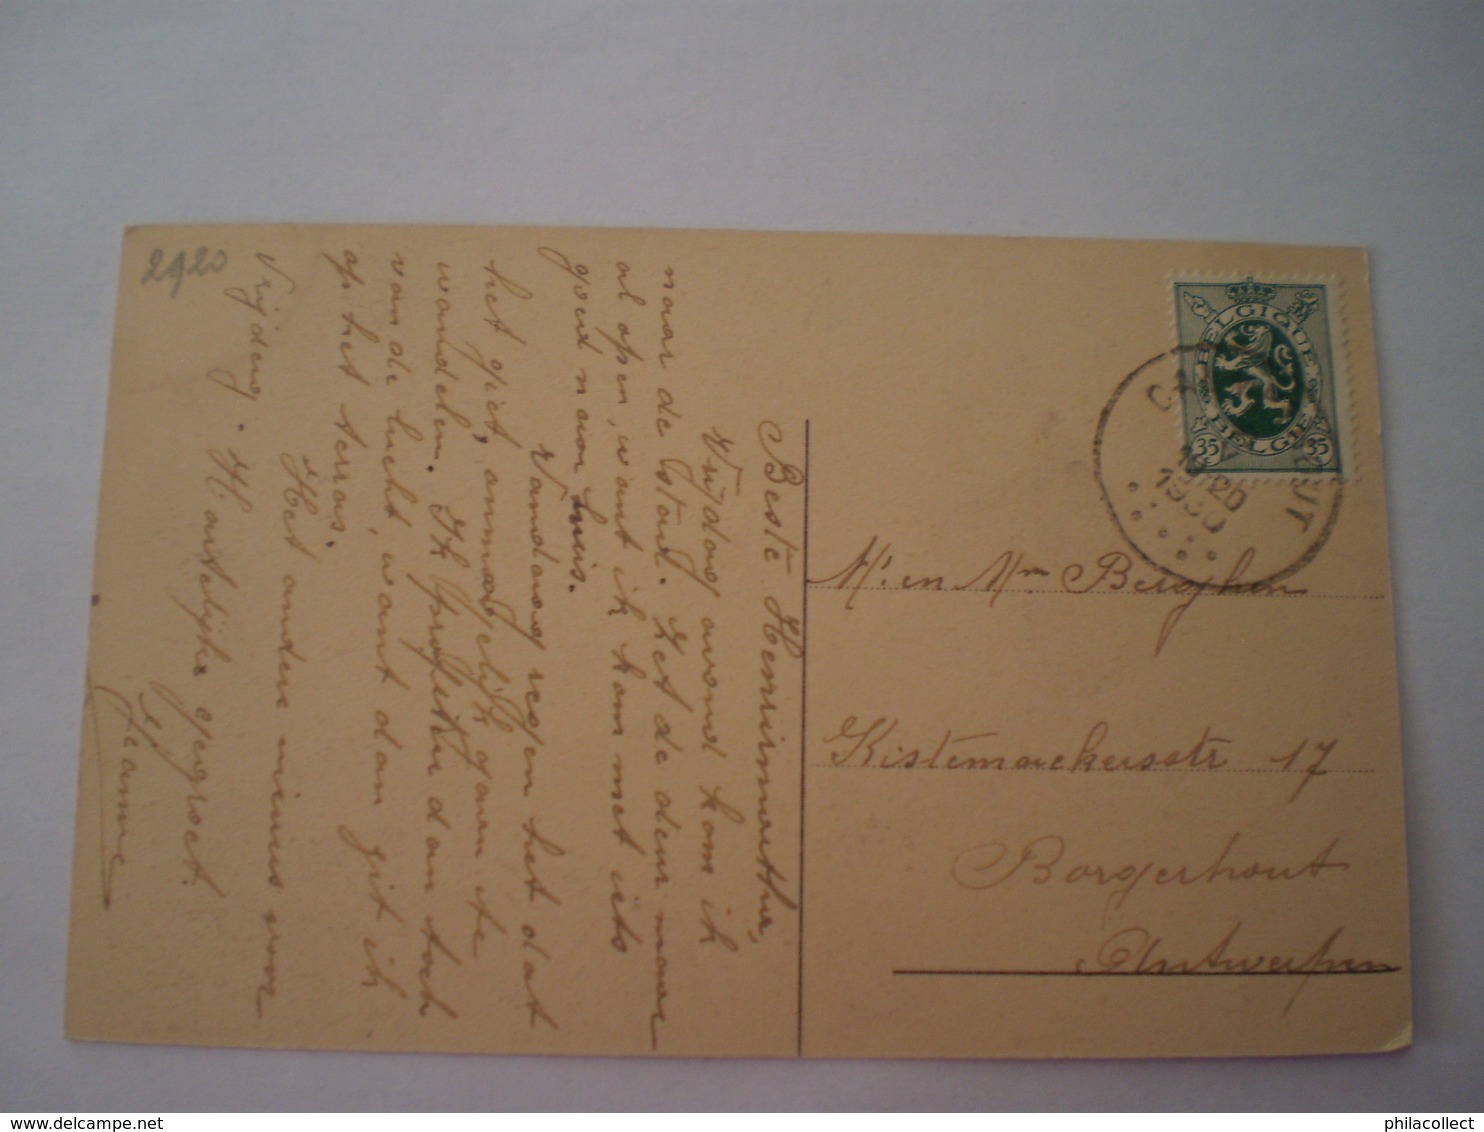 2920
Beste Henrimathe,
Vrijdag avond kom ik
naar de Stad. Zet de deur maar
al open, want ik kom met iets
goed naar huis.
Vandaag regen het dat
het giet, onmogelijk gaan te
wandelen. Ik profiteer dan toch
van de lucht, want dan zit ik
op het terras.
Het andere nieuws voor
Vrijdag. Hartelijke gegroet.
Jeanne
BELGIQUE
BELGIË
35 35
20
1930
Mr en Mm Berghen
Kistemaekersstr 17
Borgerhout
Antwerpen
delcampe.net
philacollect